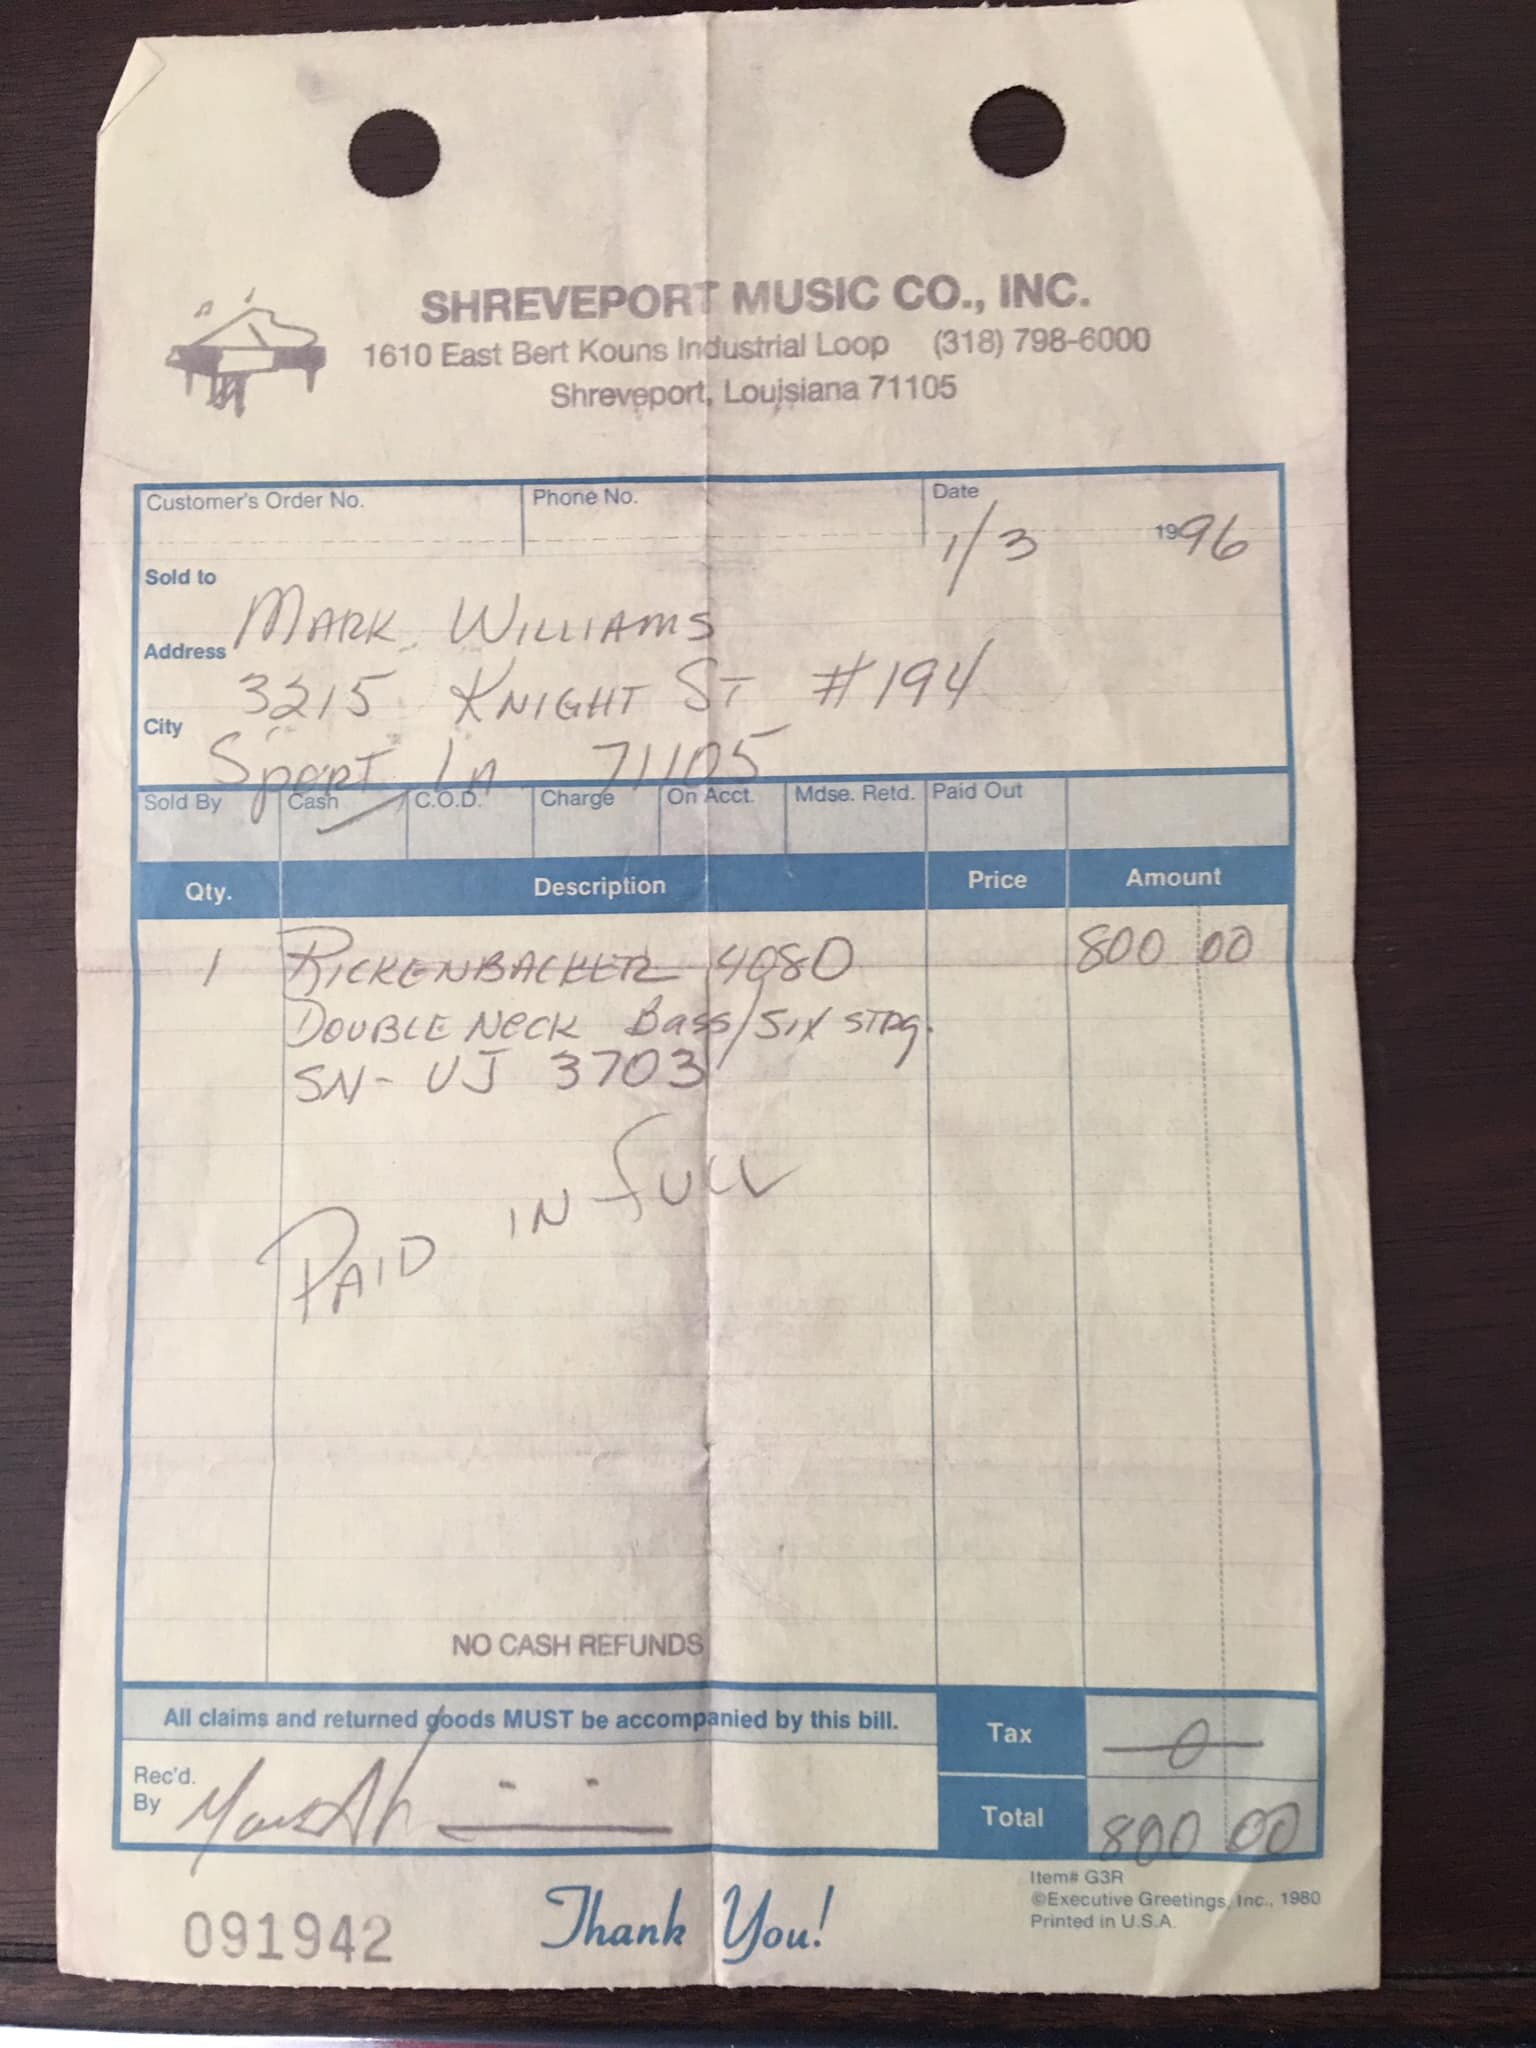 SHREVEPORT MUSIC CO., INC.
1610 East Bert Kouns Industrial Loop (318) 798-6000
Shreveport, Louisiana 71105
Customer's Order No. Phone No. Date
1/3 1996
Sold to
MARK WILLIAMS
Address
3215 KNIGHT ST #194
City
S'PORT LA 71105
Sold By Cash C.O.D. Charge On Acct. Mdse. Retd. Paid Out
Qty. Description Price Amount
1 RICKENBACKER 4080 800 00
DOUBLE NECK Bass/SIX STRG.
SN- UJ 3703
PAID IN FULL
NO CASH REFUNDS
All claims and returned goods MUST be accompanied by this bill.
Tax 0
Rec'd.
By
Total 800 00
Item# G3R
©Executive Greetings, Inc., 1980
Printed in U.S.A.
091942 Thank You!